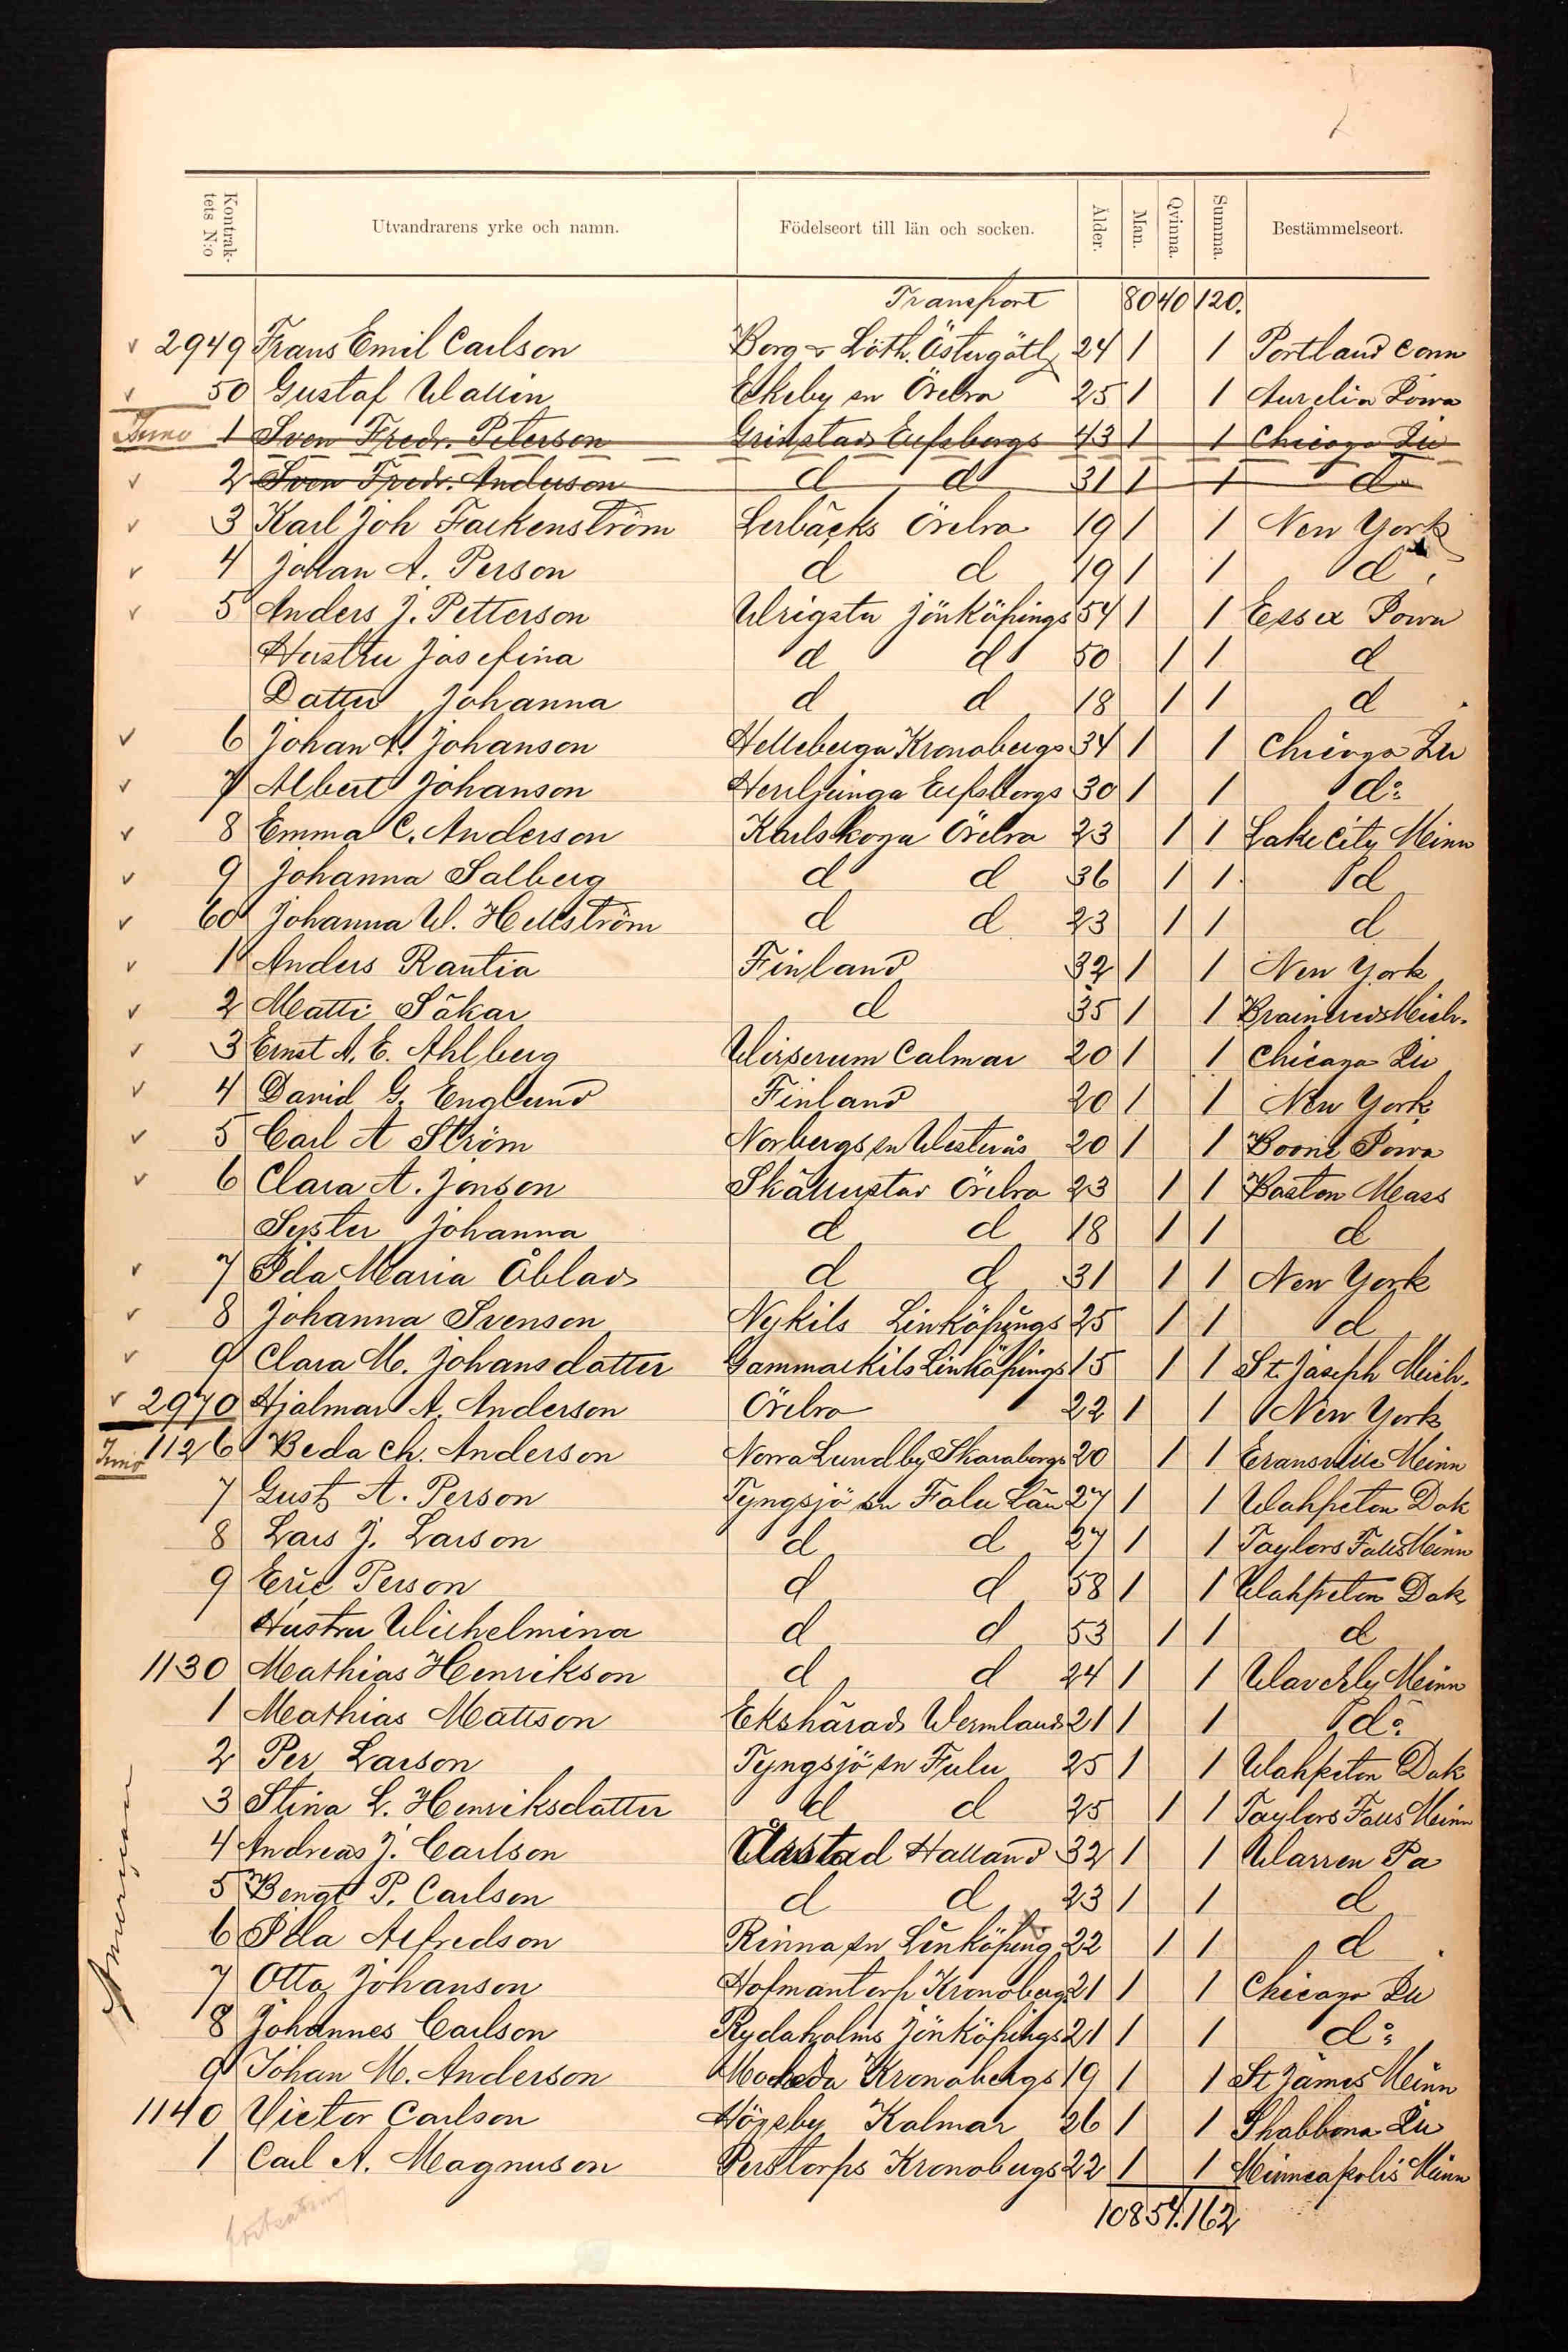 Kontrak-
tets N:o
Utvandrarens yrke och namn.
Födelseort till län och socken.
Ålder.
Man.
Qvinna.
Summa.
Bestämmelseort.
Transport 80 40 120.
2949 Frans Emil Carlson Borg & Löth. Östergötl 24 1 1 Portland Conn
50 Gustaf Wallin Ekeby sn Örebro 25 1 1 Aurelia Iowa
1 Sven Fredr. Peterson Grinstads Elfsborgs 43 1 1 Chicago Ill
2 Sven Fredr. Anderson d d 31 1 1 d
3 Karl Joh Falkenström Lerbäcks Örebro 19 1 1 New York
4 Johan A. Person d d 19 1 1 d
5 Anders J. Petterson Wrigsta Jönköpings 54 1 1 Essex Iowa
Hustru Josefina d d 50 1 1 d
Dotter Johanna d d 18 1 1 d
6 Johan A. Johanson Helleberga Kronobergs 34 1 1 Chicago Ill
7 Albert Johanson Herrljunga Elfsborgs 30 1 1 do
8 Emma C. Anderson Karlskoga Örebro 23 1 1 Lake City Minn
9 Johanna Salberg d d 36 1 1 d
60 Johanna W. Hellström d d 23 1 1 d
1 Anders Rantia Finland 32 1 1 New York
2 Matti Säkar d 35 1 1 Brainered Mich.
3 Ernst A. E. Ahlberg Wirserum Calmar 20 1 1 Chicago Ill
4 David G. Englund Finland 20 1 1 New York
5 Carl A Ström Norbergs sn Westerås 20 1 1 Boone Iowa
6 Clara A. Jonson Skällerstad Örebro 23 1 1 Boston Mass
Syster Johanna d d 18 1 1 d
7 Ida Maria Öblad d d 31 1 1 New York
8 Johanna Svenson Nykils Linköpings 25 1 1 d
9 Clara M. Johansdatter Gammalkils Linköpings 15 1 1 St. Joseph Mich.
2970 Hjalmar A. Anderson Örebro 22 1 1 New York
1126 Beda Ch. Anderson Norra Lundby Skaraborgs 20 1 1 Evansville Minn
7 Gust A. Person Tyngsjö sn Falu Län 27 1 1 Wahpeton Dak
8 Lars J. Larson d d 27 1 1 Taylors Falls Minn
9 Eric Person d d 58 1 1 Wahpeton Dak
Hustru Wilhelmina d d 53 1 1 d
1130 Mathias Henrikson d d 24 1 1 Waverly Minn
1 Mathias Mattson Ekshärads Wermlands 21 1 1 do
2 Per Larson Tyngsjö sn Falu 25 1 1 Wahpeton Dak
3 Stina L. Henriksdatter d d 25 1 1 Taylors Falls Minn
4 Andreas J. Carlson Årstad Halland 32 1 1 Warren Pa
5 Bengt P. Carlson d d 23 1 1 d
6 Ida Alfredson Rinna sn Linköping 22 1 1 d
7 Otto Johanson Hofmantorp Kronobergs 21 1 1 Chicago Ill
8 Johannes Carlson Rydaholms Jönköpings 21 1 1 do
9 Johan M. Anderson Moheda Kronobergs 19 1 1 St James Minn
1140 Victor Carlson Högsby Kalmar 26 1 1 Shabbona Ill
1 Carl A. Magnuson Perstorps Kronobergs 22 1 1 Minneapolis Minn
108 54. 162
fortsättning